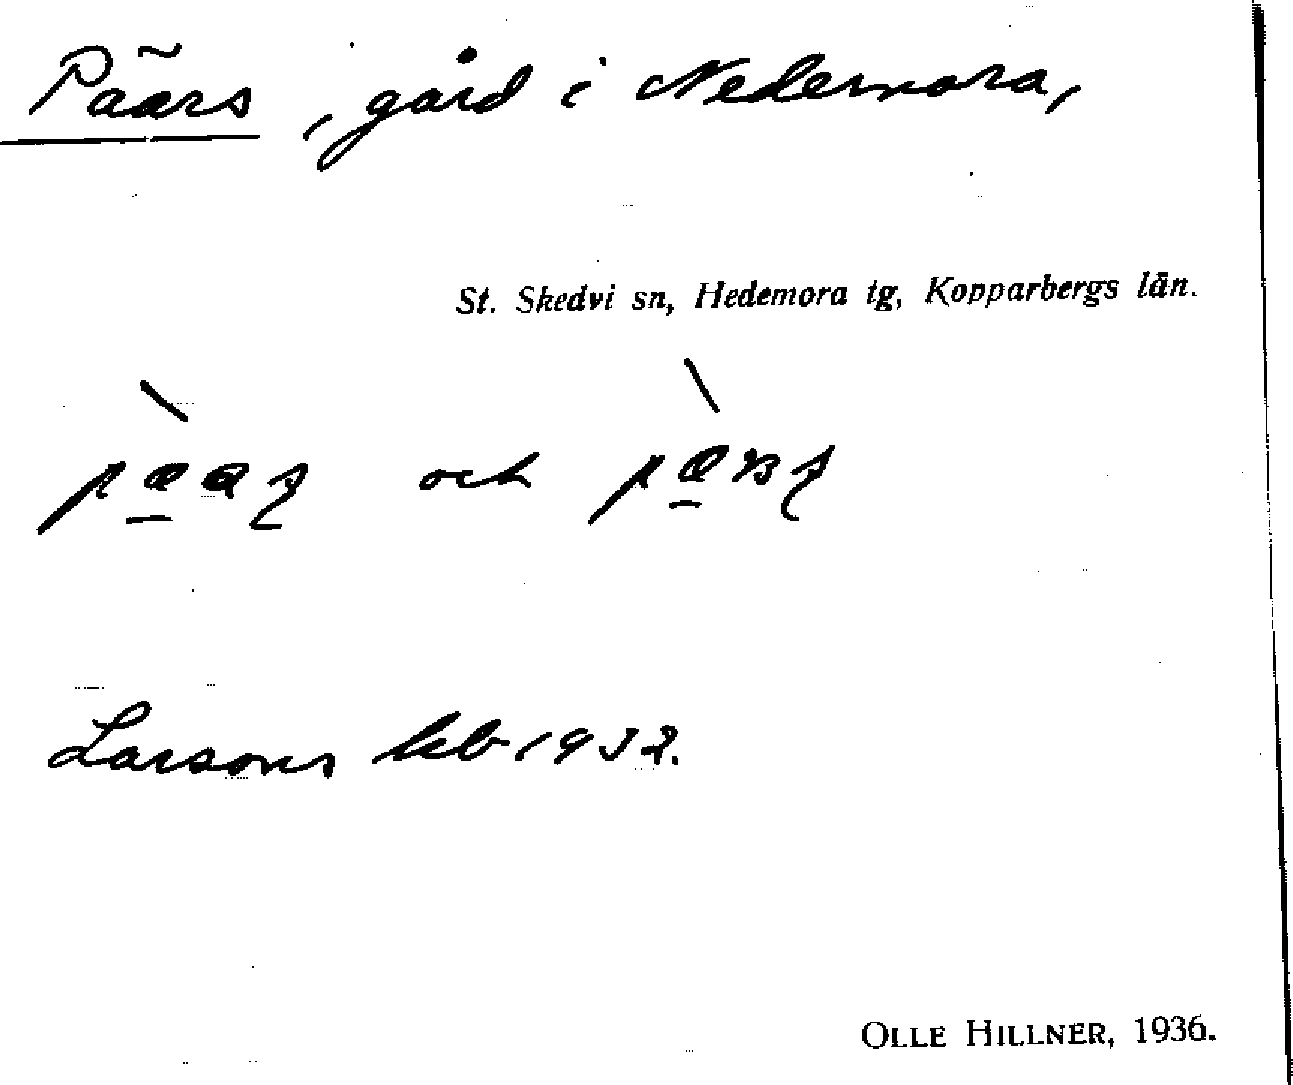 Päars, gård i Nedernora,
St. Skedvi sn, Hedemora tg, Kopparbergs län.
och
Larsons kb 1932.
OLLE HILLNER, 1936.